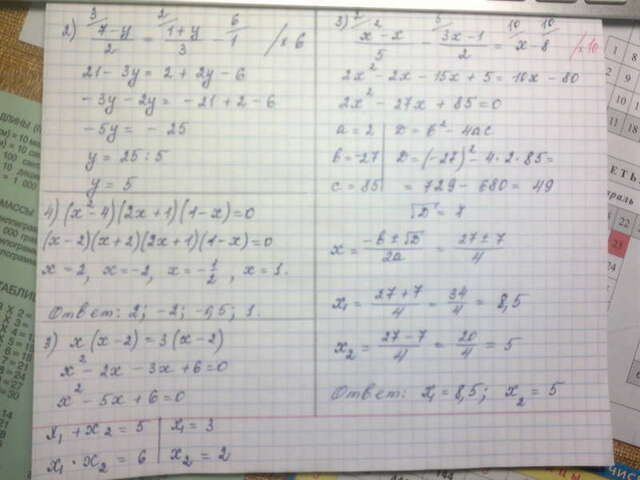 2) 3/ 7-y/2 = 2/ 1+y/3 - 6/ 1 / x 6
21 - 3y = 2 + 2y - 6
-3y - 2y = -21 + 2 - 6
-5y = -25
y = 25 : 5
y = 5
4) (x² - 4)(2x + 1)(1 - x) = 0
(x - 2)(x + 2)(2x + 1)(1 - x) = 0
x = 2, x = -2, x = -1/2, x = 1.
Ответ: 2; -2; -0,5; 1.
3) x(x - 2) = 3(x - 2)
x² - 2x - 3x + 6 = 0
x² - 5x + 6 = 0
x₁ + x₂ = 5 | x₁ = 3
x₁ · x₂ = 6 | x₂ = 2
3) 2/ x² - x/5 - 5/ 3x - 1/2 = 10/ x - 10/ 8 / x 10
2x² - 2x - 15x + 5 = 10x - 80
2x² - 27x + 85 = 0
a = 2 | D = b² - 4ac
b = -27 | D = (-27)² - 4 · 2 · 85 =
c = 85 | = 729 - 680 = 49
√D = 7
x = -b ± √D/2a = 27 ± 7/4
x₁ = 27 + 7/4 = 34/4 = 8,5
x₂ = 27 - 7/4 = 20/4 = 5
Ответ: x₁ = 8,5; x₂ = 5